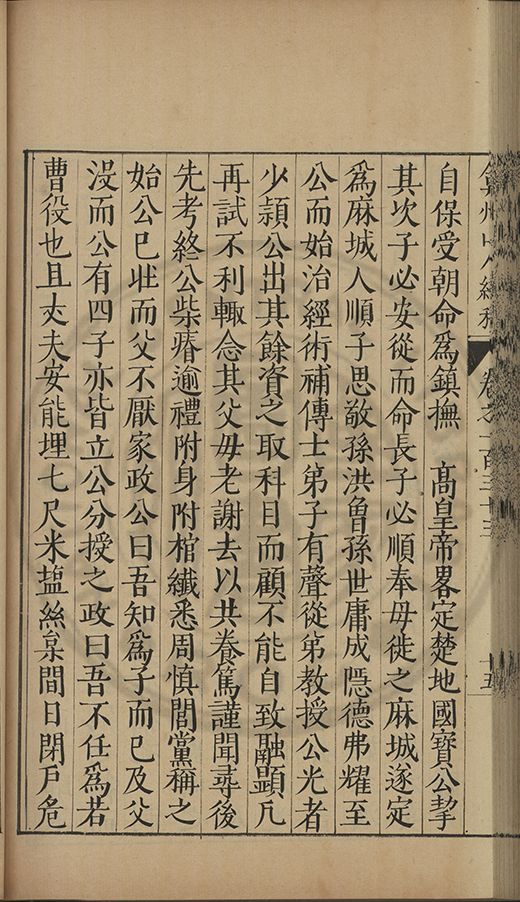 自保受朝命爲鎮撫　髙皇帝畧定楚地國寶公挈
其次子必安從而命長子必順奉母徙之麻城遂定
爲麻城人順子思敬孫洪魯孫世庸成隱德弗耀至
公而始治經術補傳士弟子有聲從弟教授公光者
少頴公出其餘資之取科目而顧不能自致融顯凡
再試不利輙念其父毋老謝去以共養篤謹聞尋後
先考終公柴瘠逾禮附身附棺纎悉周慎閭黨稱之
始公巳壯而父不厭家政公曰吾知爲子而巳及父
沒而公有四子亦皆立公分授之政曰吾不任爲若
曹役也且𠀋夫安能埋七尺米塩絲枲間日閉戸危
卷之一百三十三
十五